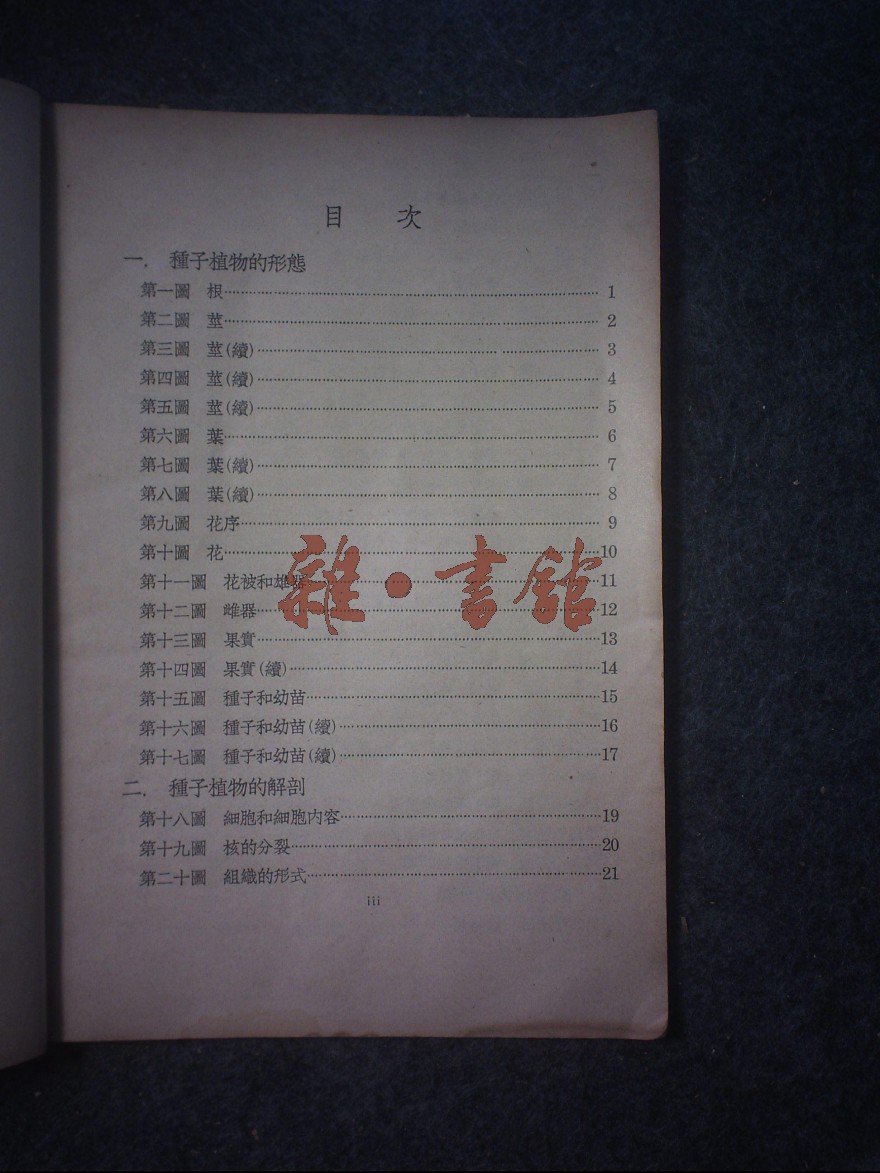 目 次
一. 種子植物的形態
第一圖 根 1
第二圖 莖 2
第三圖 莖(續) 3
第四圖 莖(續) 4
第五圖 莖(續) 5
第六圖 葉 6
第七圖 葉(續) 7
第八圖 葉(續) 8
第九圖 花序 9
第十圖 花 10
第十一圖 花被和雄器 11
第十二圖 雌器 12
第十三圖 果實 13
第十四圖 果實(續) 14
第十五圖 種子和幼苗 15
第十六圖 種子和幼苗(續) 16
第十七圖 種子和幼苗(續) 17
二. 種子植物的解剖
第十八圖 細胞和細胞內容 19
第十九圖 核的分裂 20
第二十圖 組織的形式 21
iii
雜·書館